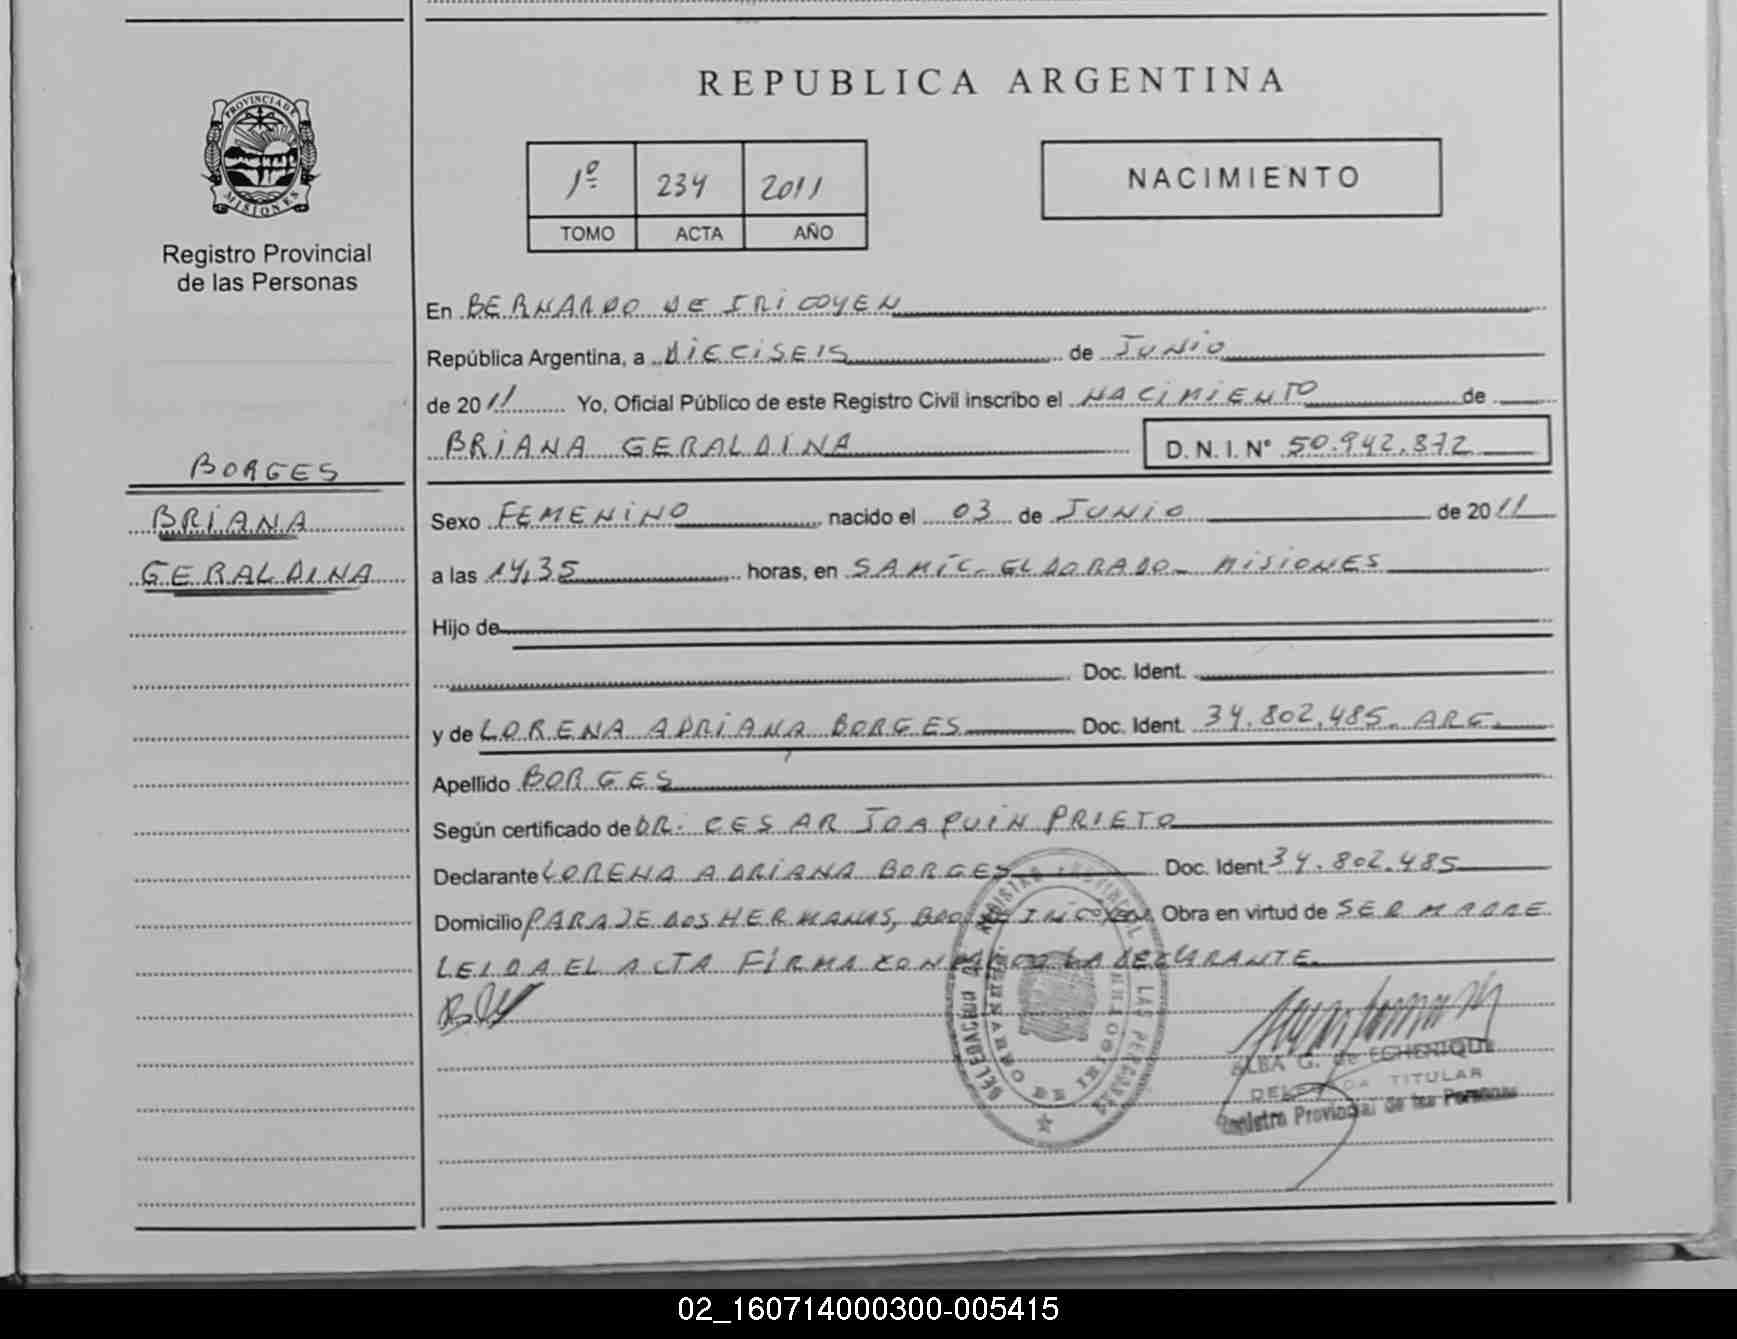 REPUBLICA ARGENTINA
PROVINCIA DE MISIONES
Registro Provincial
de las Personas
1º 234 2011
TOMO ACTA AÑO
NACIMIENTO
En BERNARDO DE IRIGOYEN
República Argentina, a DIECISEIS de JUNIO
de 2011 Yo, Oficial Público de este Registro Civil inscribo el NACIMIENTO de
BRIANA GERALDINA D.N.I. Nº 50.942.372
BORGES
BRIANA
GERALDINA
Sexo FEMENINO nacido el 03 de JUNIO de 2011
a las 14,35 horas, en SAMIC- ELDORADO- MISIONES
Hijo de
Doc. Ident.
y de LORENA ADRIANA BORGES Doc. Ident. 34.802.485. ARG.
Apellido BORGES
Según certificado de DR. CESAR JOAQUIN PRIETO
Declarante LORENA ADRIANA BORGES Doc. Ident. 34.802.485
Domicilio PARAJE DOS HERMANAS, BDO DE IRIGOYEN Obra en virtud de SER MADRE
LEIDA EL ACTA FIRMA CONMIGO LA DECLARANTE.
DELEGACION DEL REGISTRO PROVINCIAL DE LAS PERSONAS
BERNARDO DE IRIGOYEN
ALBA G. de ECHENIQUE
DELEGADA TITULAR
Registro Provincial de las Personas
02_160714000300-005415